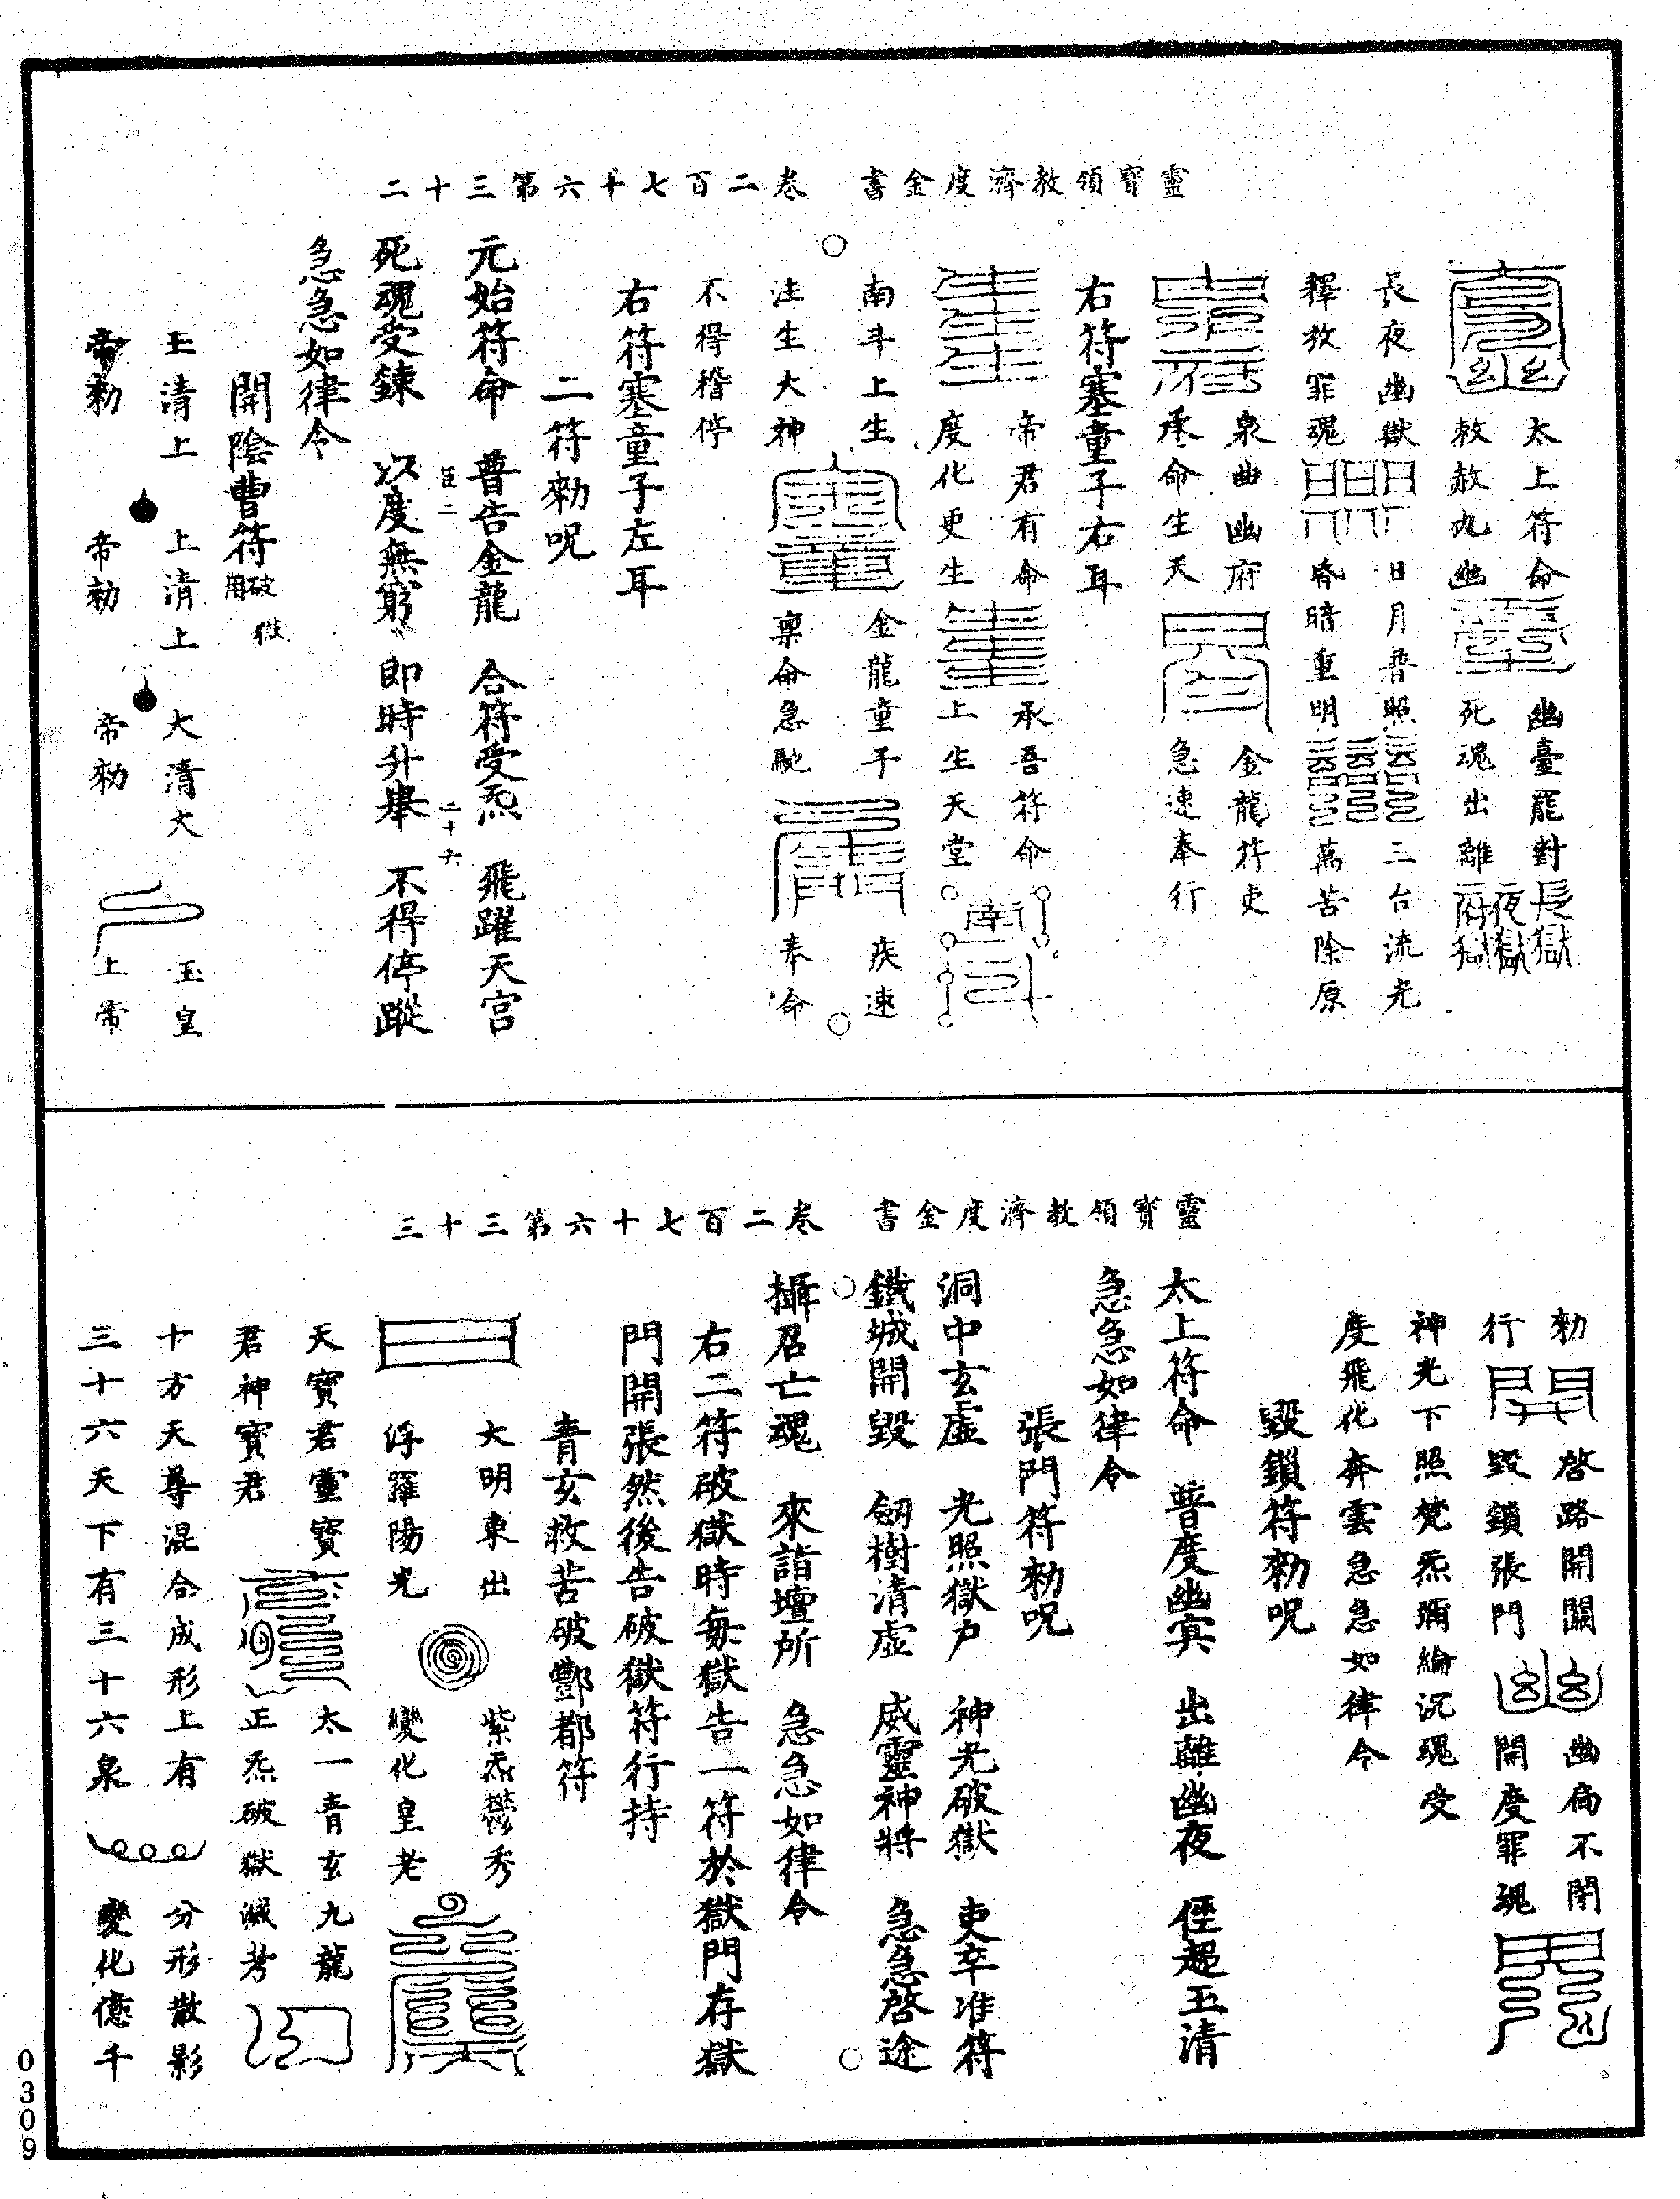 靈寶領教濟度金書　卷二百七十六第三十二
太上符命　幽臺罷對
敕赦九幽　死魂出離
長夜幽獄　日月普照　三台流光
釋放罪魂　昏暗重明　萬苦除原
泉幽幽府　金龍符吏
承命生天　急速奉行
右符塞童子右耳
帝君有命　承吾符命
度化更生　上生天堂
南斗上生　金龍童子　疾速
注生大神　稟命急馳　奉命
不得稽停
右符塞童子左耳
二符勑呪
元始符命　普告金龍　合符受炁　飛躍天宮
死魂受鍊　以度無窮　即時升舉　不得停蹤
急急如律令
開陰曹符破獄用
玉清上　上清上　太清大　玉皇
帝勑　帝勑　帝勑　上帝
靈寶領教濟度金書　卷二百七十六第三十三
勑　啓路開關　幽扃不閉
行　毀鎖張門　開度罪魂
神光下照梵炁彌綸沉魂受
度飛化奔雲急急如律令
毀鎖符勑呪
太上符命　普度幽冥　出離幽夜　徑超玉清
急急如律令
張門符勑呪
洞中玄虛　光照獄戶　神光破獄　吏卒准符
鐵城開毀　劒樹清虛　威靈神將　急急啓途
攝召亡魂　來詣壇所　急急如律令
右二符破獄時每獄告一符於獄門存獄
門開張然後告破獄符行持
青玄救苦破酆都符
大明東出　紫炁鬱秀
浮羅陽光　變化皇老
天寶君靈寶　太一青玄九龍
君神寶君　正炁破獄滅考
十方天尊混合成形上有　分形散影
三十六天下有三十六泉　變化億千
0309